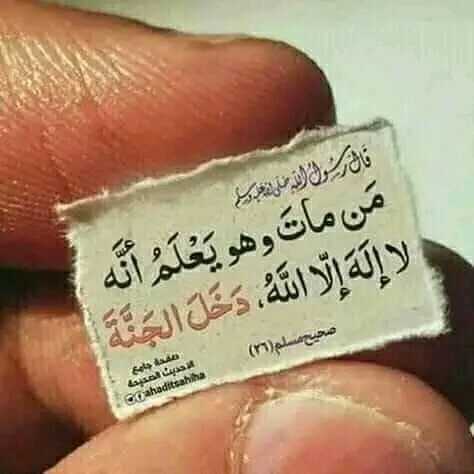 قال رسول الله صلى الله عليه وسلم
مَن ماتَ وهو يَعْلَمُ أنَّه
لا إلَهَ إلّا اللَّهُ، دَخَلَ الجَنَّةَ
صحيح مسلم (٢٦)
صفحة جامع
الاحديث الصحيحة
ahaditsahiha